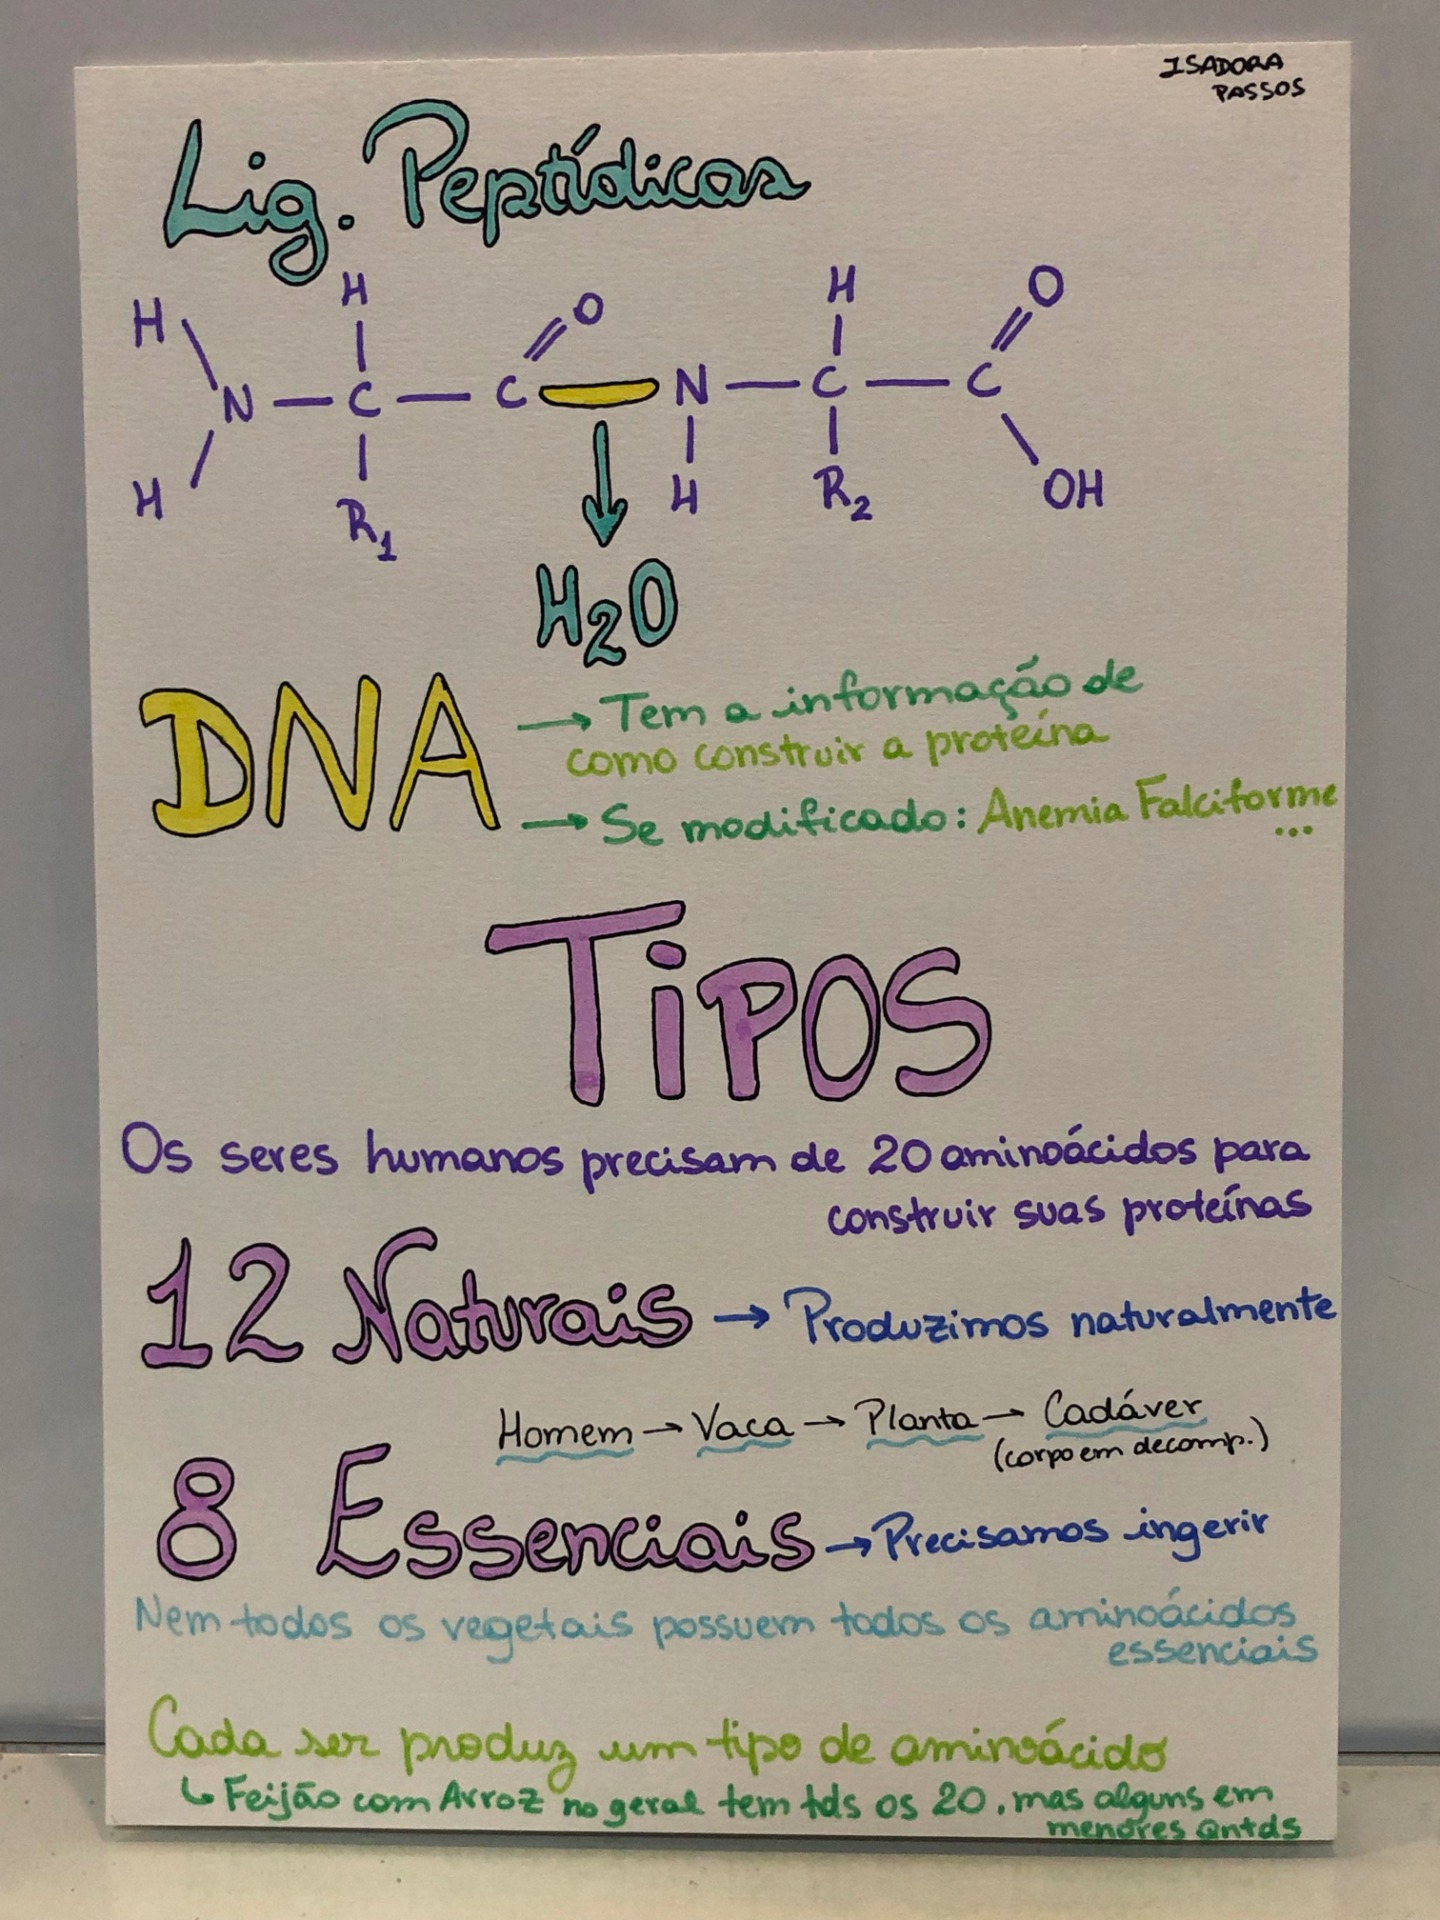 ISADORA
PASSOS
Lig. Peptídicas
H H O H O
N — C — C — N — C — C
H R1 H R2 OH
H2O
DNA
→ Tem a informação de
como construir a proteína
→ Se modificado: Anemia Falciforme
...
TiPOS
Os seres humanos precisam de 20 aminoácidos para
construir suas proteínas
12 Naturais → Produzimos naturalmente
Homem → Vaca → Planta → Cadáver
(corpo em decomp.)
8 Essenciais → Precisamos ingerir
Nem todos os vegetais possuem todos os aminoácidos
essenciais
Cada ser produz um tipo de aminoácido
↳ Feijão com Arroz no geral tem tds os 20, mas alguns em
menores qntds